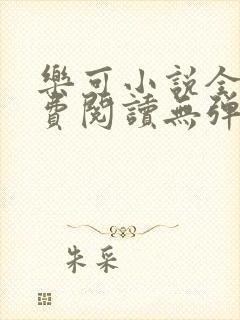 樂可小說全
費閱讀無彈
朱采